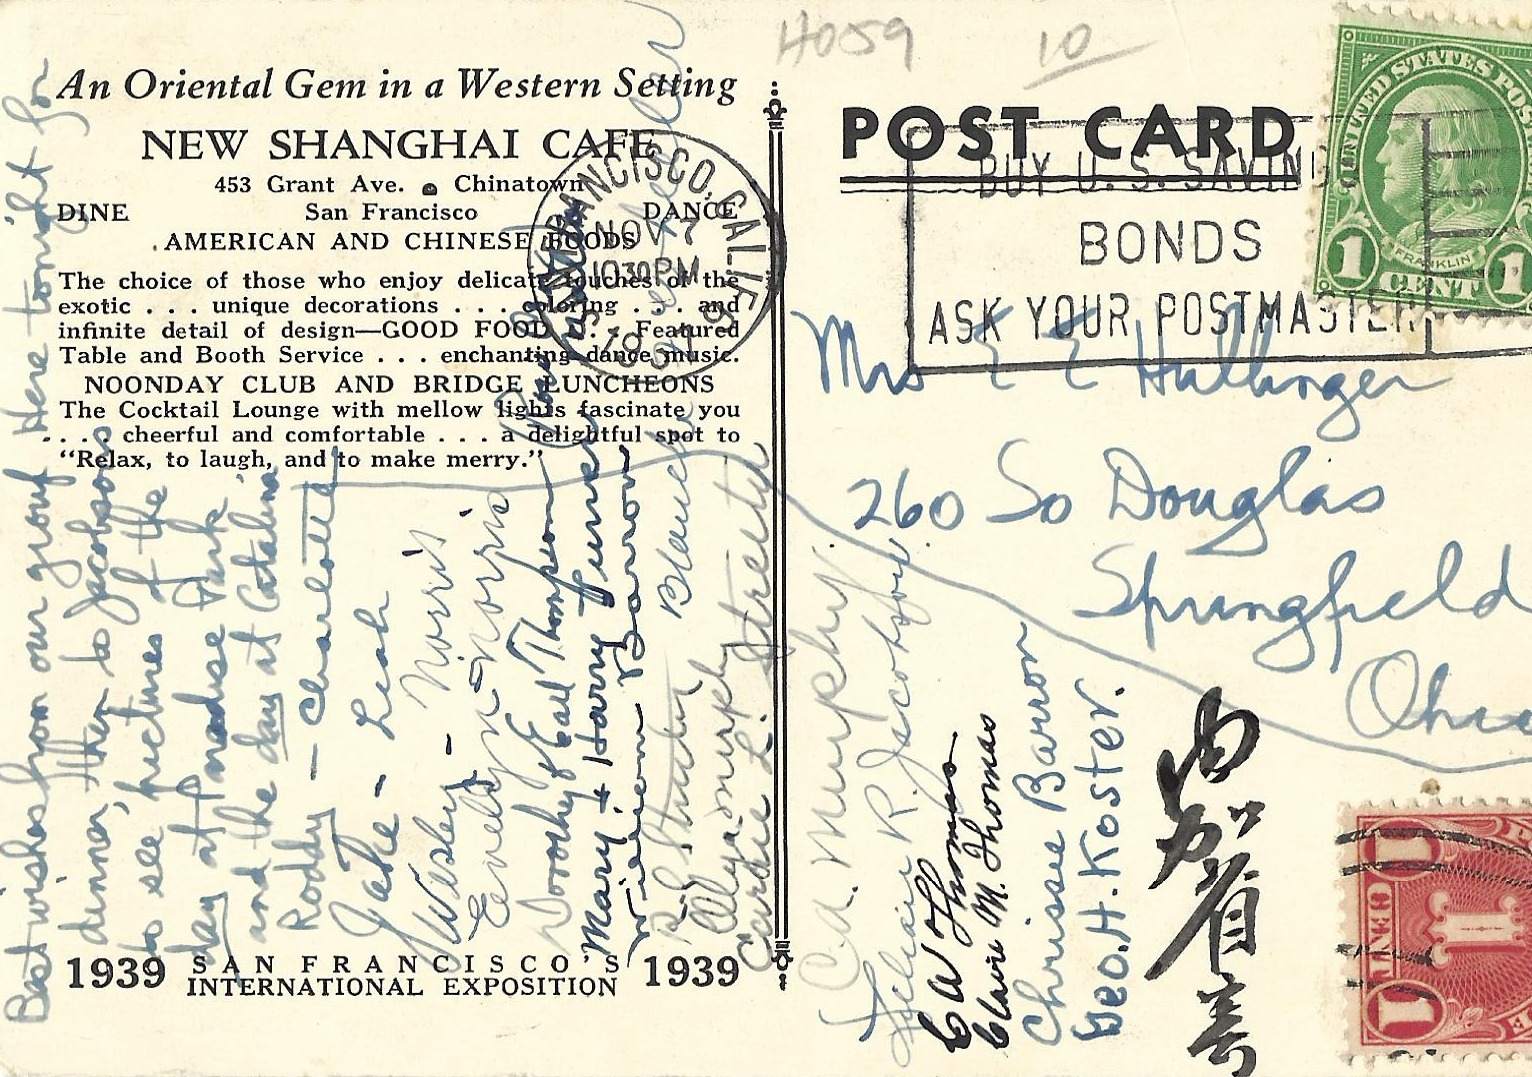 H059
10
An Oriental Gem in a Western Setting
NEW SHANGHAI CAFE
453 Grant Ave. Chinatown
DINE San Francisco DANCE
AMERICAN AND CHINESE FOODS
The choice of those who enjoy delicate touches of the
exotic . . . unique decorations . . . coloring . . . and
infinite detail of design—GOOD FOOD . . . Featured
Table and Booth Service . . . enchanting dance music.
NOONDAY CLUB AND BRIDGE LUNCHEONS
The Cocktail Lounge with mellow lights fascinate you
. . . . cheerful and comfortable . . . a delightful spot to
“Relax, to laugh, and to make merry.”
1939 SAN FRANCISCO'S 1939
INTERNATIONAL EXPOSITION
Best wishes from our group Here tonight for
dinner, then to Jacobsons
to see pictures of the
day at Paradise Park
and the day at Catalina
Roddy - Charlotte
Jake - Leah
Wesley - Norris
Evelyn Norris
Dorothy & Earl Thompson
Mary + Harry Turner
William Barron
Blanche
Carrie L. Streeter
SAN FRANCISCO, CALIF.
NOV 7
10 30 PM
1939
POST CARD
BUY U. S. SAVINGS
BONDS
ASK YOUR POSTMASTER
UNITED STATES POSTAGE
FRANKLIN
1 CENT 1
Mrs E E Hullinger
260 So Douglas
Springfield
Ohio
C. A. Murphy
R. Jacobson
E W Thomas
Claire M. Thomas
Chrisse Barron
Geo. H. Koster.
1 CENT
1